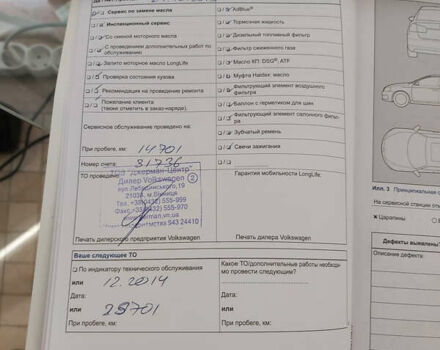 Сервис по замене масла
Инспекционный сервис
Со сменой моторного масла
С проведением дополнительных работ по
обслуживанию)
Залито моторное масло LongLife
Проверка состояния кузова
Рекомендация на проведение ремонта
Пожелание клиента
(также отметить в заказ-наряде).
Сервисное обслуживание проведено на:
При пробеге, км: 14701
Номер счета: 31736
ТО проведено
ТОВ "Джерман Центр"
Дилер Volkswagen 2
вул. Лебединського, 19
21034, м. Вінниця
Тел. +38(0432) 555-999
Факс +38(0432) 555-970
943 24410
Печать дилерского предприятия Volkswagen
AdBlue®
Тормозная жидкость
Дизельный топливный фильтр
Фильтр сжиженного газа
Масло КП: DSG®, ATF
Муфта Haldex: масло
Фильтрующий элемент воздушного
фильтра
Баллон с герметиком для шин
Фильтрующий элемент салонного фильт-
ра
Зубчатый ремень
Свечи зажигания
Гарантия мобильности LongLife:
Печать дилера Volkswagen
Ваше следующее ТО
По индикатору технического обслуживания
или 12.2014
Дата:
или 29701
При пробеге, км:
Какое ТО/дополнительные работы необходи-
мо провести следующим?
или
Дата:
или
При пробеге, км:
Илл. 3 Принципиальная с
На сервисной станции от
Царапины
Дефекты выявлены?
Описание дефекта: